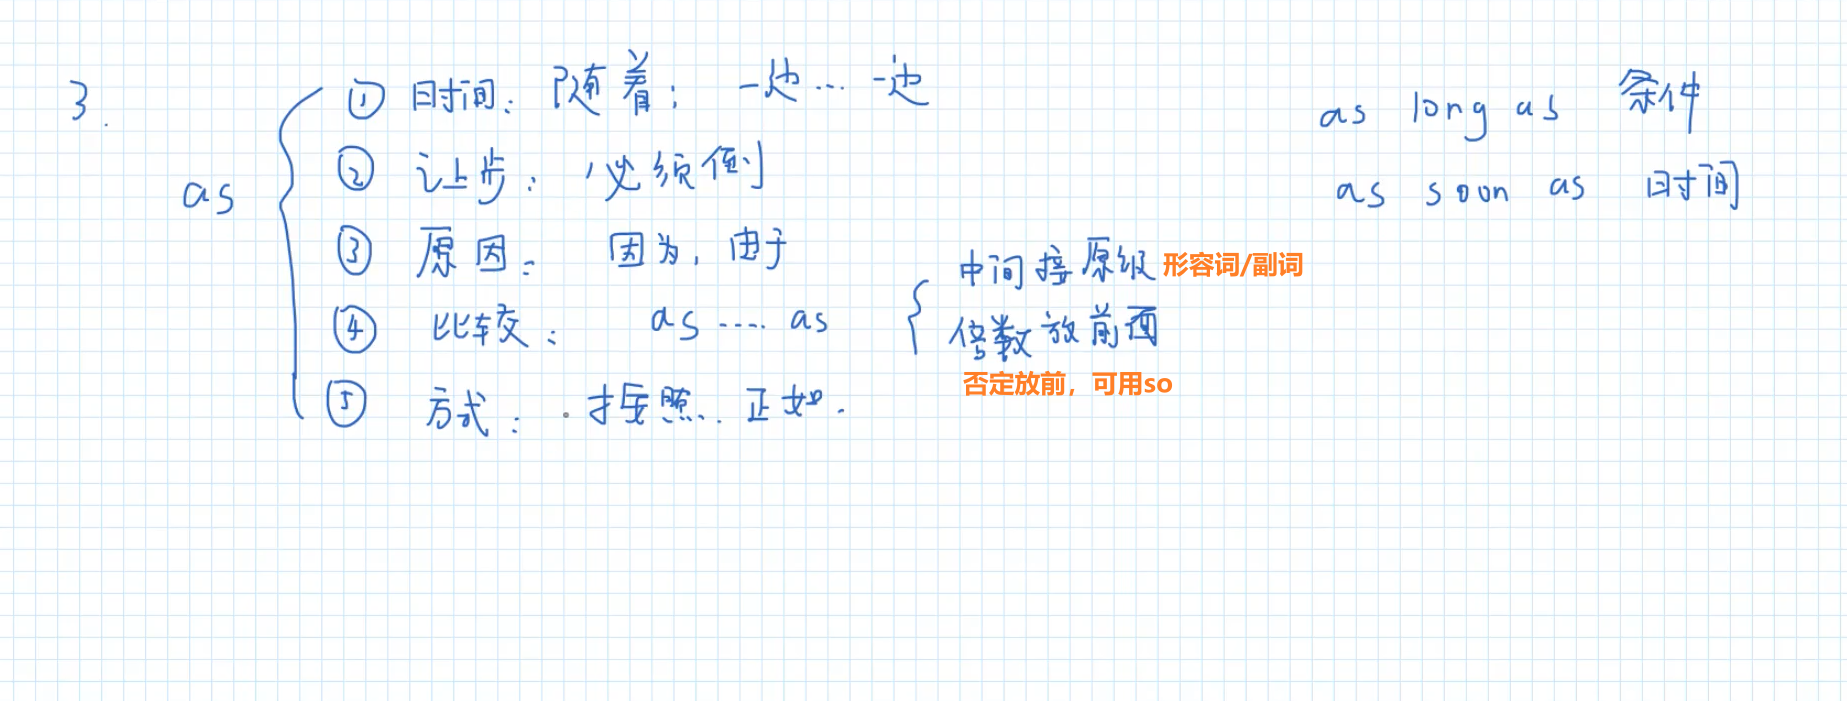 3.
as
① 时间：随着；一边…一边
② 让步：必须倒
③ 原因：因为，由于
④ 比较：as .... as
中间接原级 形容词/副词
倍数放前面
否定放前，可用so
⑤ 方式：按照、正如.
as long as 条件
as soon as 时间